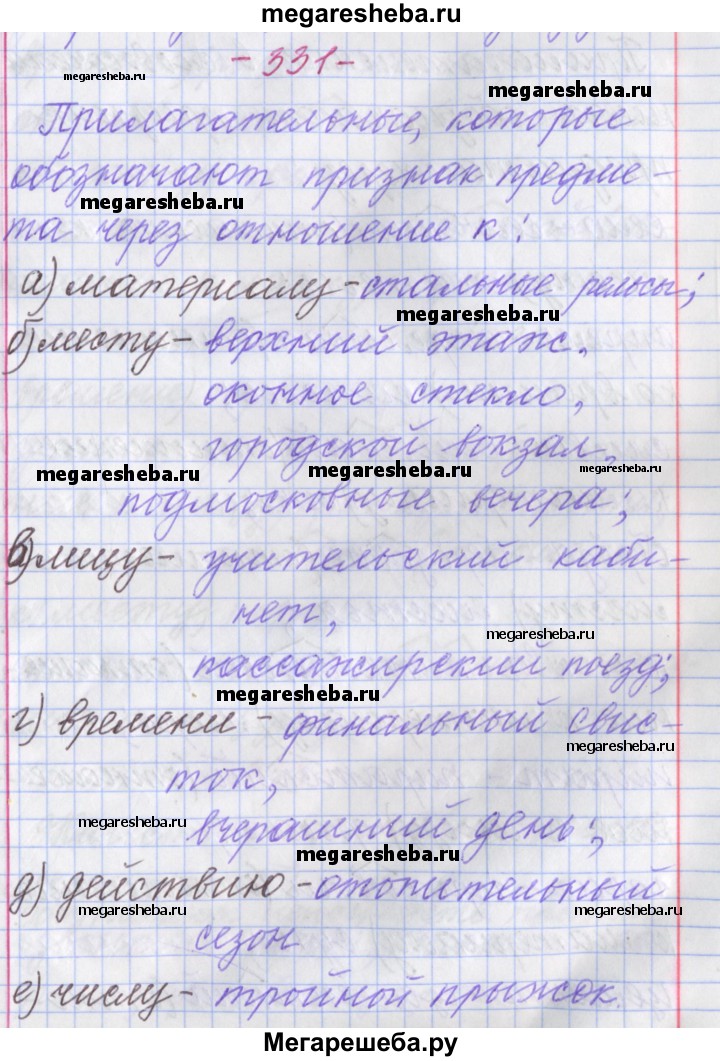 megaresheba.ru
- 331 -
megaresheba.ru
megaresheba.ru
Прилагательные, которые
обозначают признак предме-
megaresheba.ru
та через отношение к:
а) материалу - стальные рельсы;
megaresheba.ru
б) месту - верхний этаж.
оконное стекло,
городской вокзал,
megaresheba.ru megaresheba.ru megaresheba.ru
подмосковные вечера;
в) лицу - учительский каби-
нет,
megaresheba.ru
пассажирский поезд;
megaresheba.ru
г) времени - финальный свис-
megaresheba.ru
ток,
megaresheba.ru
вчерашний день;
megaresheba.ru
д) действию - отопительный
megaresheba.ru megaresheba.ru
сезон
е) числу - тройной прыжок.
Мегарешеба.ру